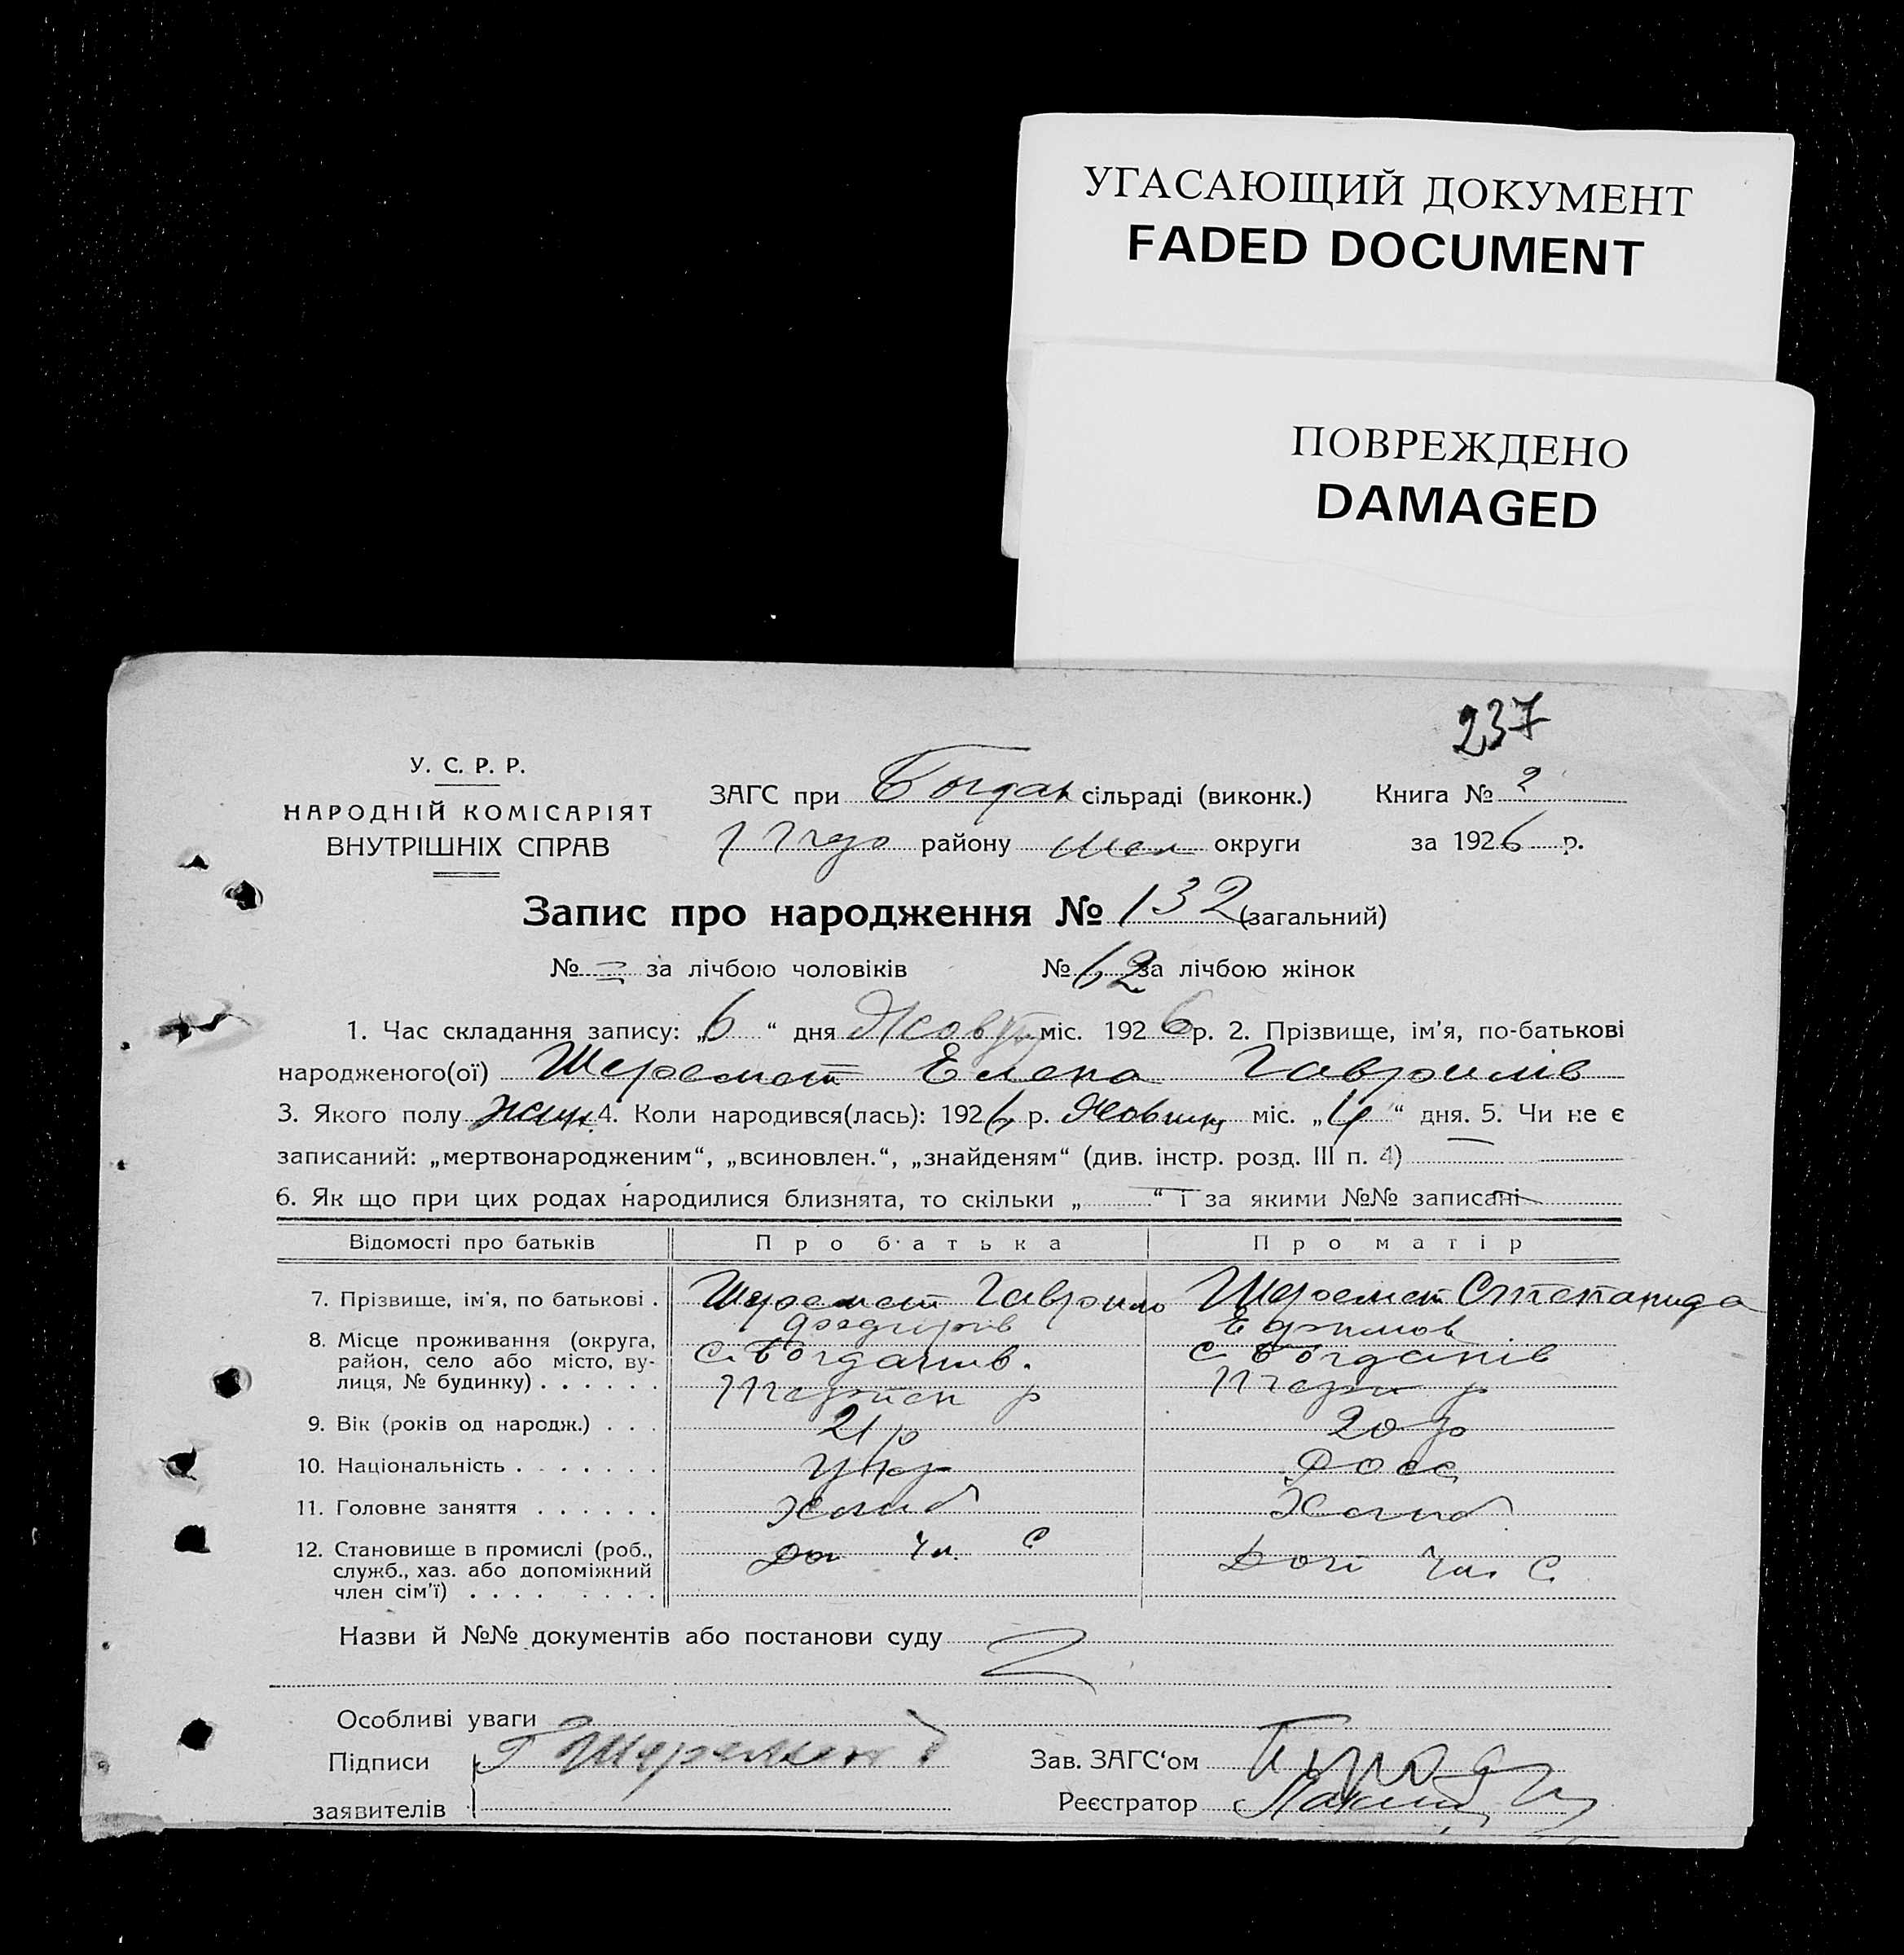 УГАСАЮЩИЙ ДОКУМЕНТ
FADED DOCUMENT
ПОВРЕЖДЕНО
DAMAGED
237
У. С. Р. Р.
НАРОДНІЙ КОМІСАРІЯТ
ВНУТРІШНІХ СПРАВ
ЗАГС при Богдан сільраді (виконк.) Книга № 2
району Мел округи за 1926 р.
Запис про народження № 132 (загальний)
№ = за лічбою чоловіків № 62 за лічбою жінок
1. Час складання запису: „6“ дня Жовт міс. 1926 р. 2. Прізвище, ім'я, по-батькові
народженого(ої) Шеремет Елена Гаврилів
3. Якого полу жін. 4. Коли народився(лась): 1926 р. Жовтня міс. „4“ дня. 5. Чи не є
записаний: „мертвонародженим“, „всиновлен.“, „знайденям“ (див. інстр. розд. III п. 4) —
6. Як що при цих родах народилися близнята, то скільки „ — “ і за якими №№ записані —
Відомості про батьків Про батька Про матір
7. Прізвище, ім'я, по батькові . Шеремет Гаврило Шеремет Степанида
Федорів Ефимов
8. Місце проживання (округа, район, село або місто, вулиця, № будинку) . . . . . . с. Богданів. с Богданів
р р
9. Вік (років од народж.) . . . 21 р 20 р
10. Національність . . . . . . . Укр Росс
11. Головне заняття . . . . . . Хліб Хліб
12. Становище в промислі (роб., служб., хаз. або допоміжний член сім'ї) . . . . . . . . Доп чл. С Доп чл. С.
Назви й №№ документів або постанови суду
Особливі уваги
Підписи заявителів Г Шеремет
Зав. ЗАГС'ом
Реєстратор